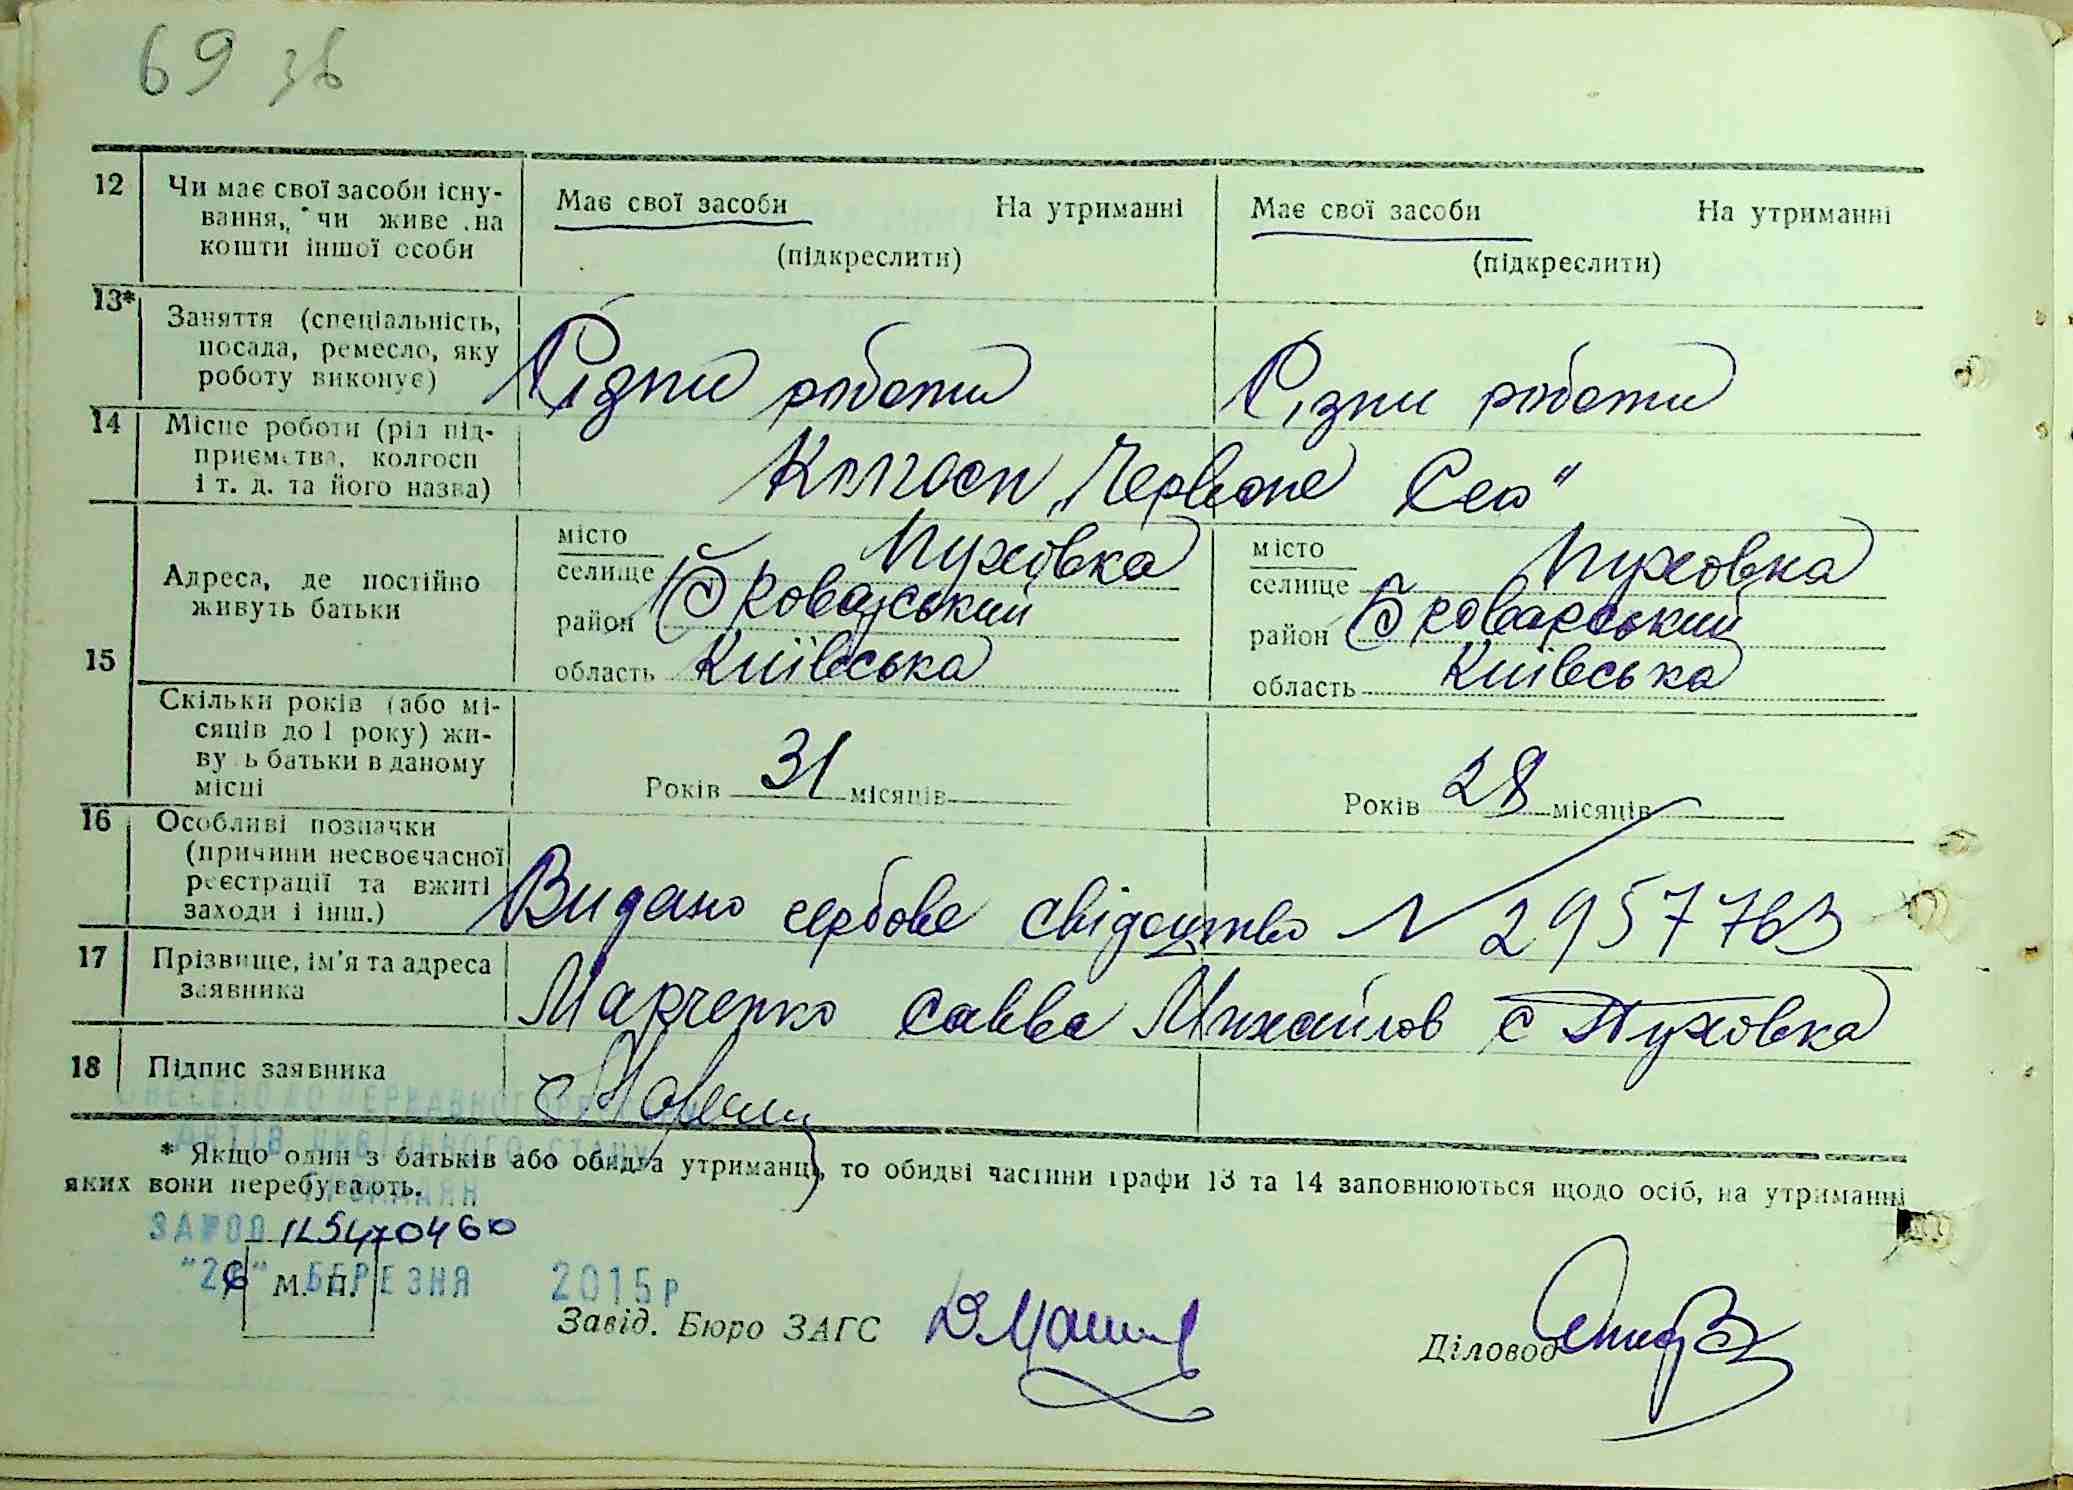 69 зв
12 Чи має свої засоби існу-
вання, чи живе на
кошти іншої особи
Має свої засоби На утриманні
(підкреслити)
Має свої засоби На утриманні
(підкреслити)
13* Заняття (спеціальність,
посада, ремесло, яку
роботу виконує)
Різни роботи
Різни роботи
14 Місце роботи (рід під-
приємства, колгосп
і т. д. та його назва)
Колгосп „Червоне Село"
15 Адреса, де постійно
живуть батьки
місто
селище Пуховка
район Броварський
область Київська
місто
селище Пуховка
район Броварський
область Київська
Скільки років (або мі-
сяців до 1 року) жи-
вуть батьки в даному
місці
Років 31 місяців
Років 28 місяців
16 Особливі позначки
(причини несвоєчасної
реєстрації та вжиті
заходи і інш.)
Видано гербове свідоцтво N 2957763
17 Прізвище, ім'я та адреса
заявника
Марченко Савва Михайлов с Пуховка
18 Підпис заявника
ВНЕСЕНО ДО ДЕРЖАВНОГО РЕЄСТРУ
АКТІВ ЦИВІЛЬНОГО СТАНУ
ГРОМАДЯН
* Якщо один з батьків або обидва утриманці, то обидві частини графи 13 та 14 заповнюються щодо осіб, на утриманні
яких вони перебувають.
"26" БЕРЕЗНЯ 2015 р
М. П.
Завід. Бюро ЗАГС
Діловод